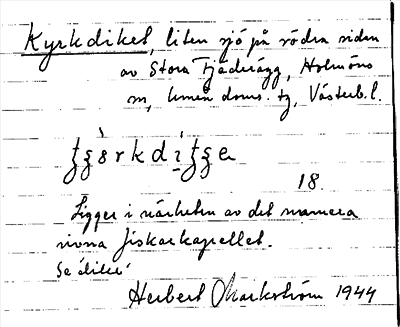 Kyrkdiket, liten sjö på södra sidan
av Stora Fjäderägg, Holmöns
sn, Umeå doms. tg, Västerb. l.
18.
Ligger i närheten av det numera
rivna fiskarkapellet.
Se diket
Herbert Markström 1944